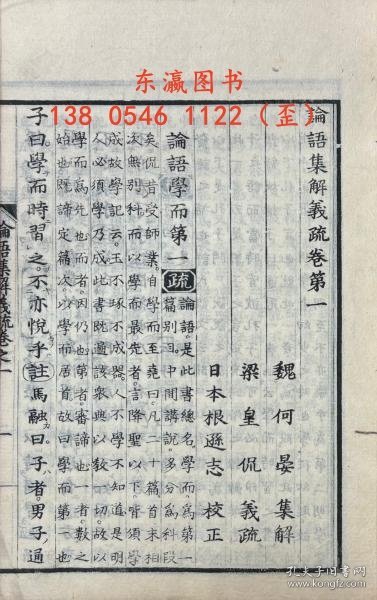 东瀛图书
138 0546 1122（歪）
論語集解義疏卷第一
魏何晏集解
梁皇侃義疏
日本根遜志校正
論語學而第一疏論語是此書總名學而為第一
篇別目中間講說多分為科段
矣侃昔受師業自學而至堯曰凡二十篇首末相
次無別科而以學而最先者言降聖以下皆須學
成故學記云玉不琢不成器人不學不知道是明
人必須學乃成此書既遍該衆典以教一切故以
學而為先也而者因仍也第者審諦也一者數之
始也既諦定篇次以學而居首故曰學而第一也
子曰學而時習之不亦悅乎註馬融曰子者男子通
論語集解義疏卷之一
孔夫子旧书网